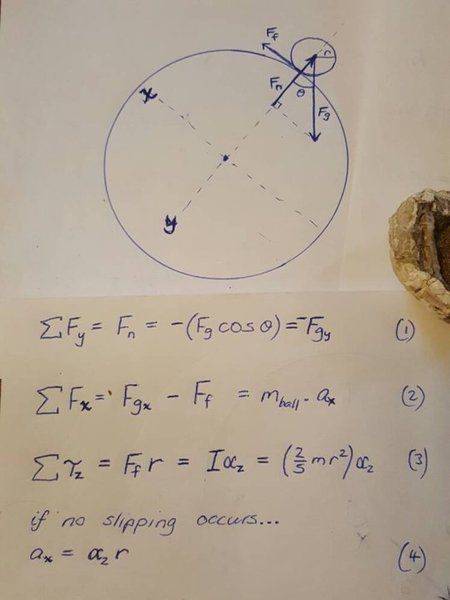 F_f
r
x
F_n
θ
F_g
y
ΣF_y = F_n = -(F_g cos θ) = -F_gy (1)
ΣF_x = F_gx - F_f = m_ball . a_x (2)
Στ_z = F_f r = Iα_z = (2/5 mr²)α_z (3)
if no slipping occurs...
a_x = α_z r (4)